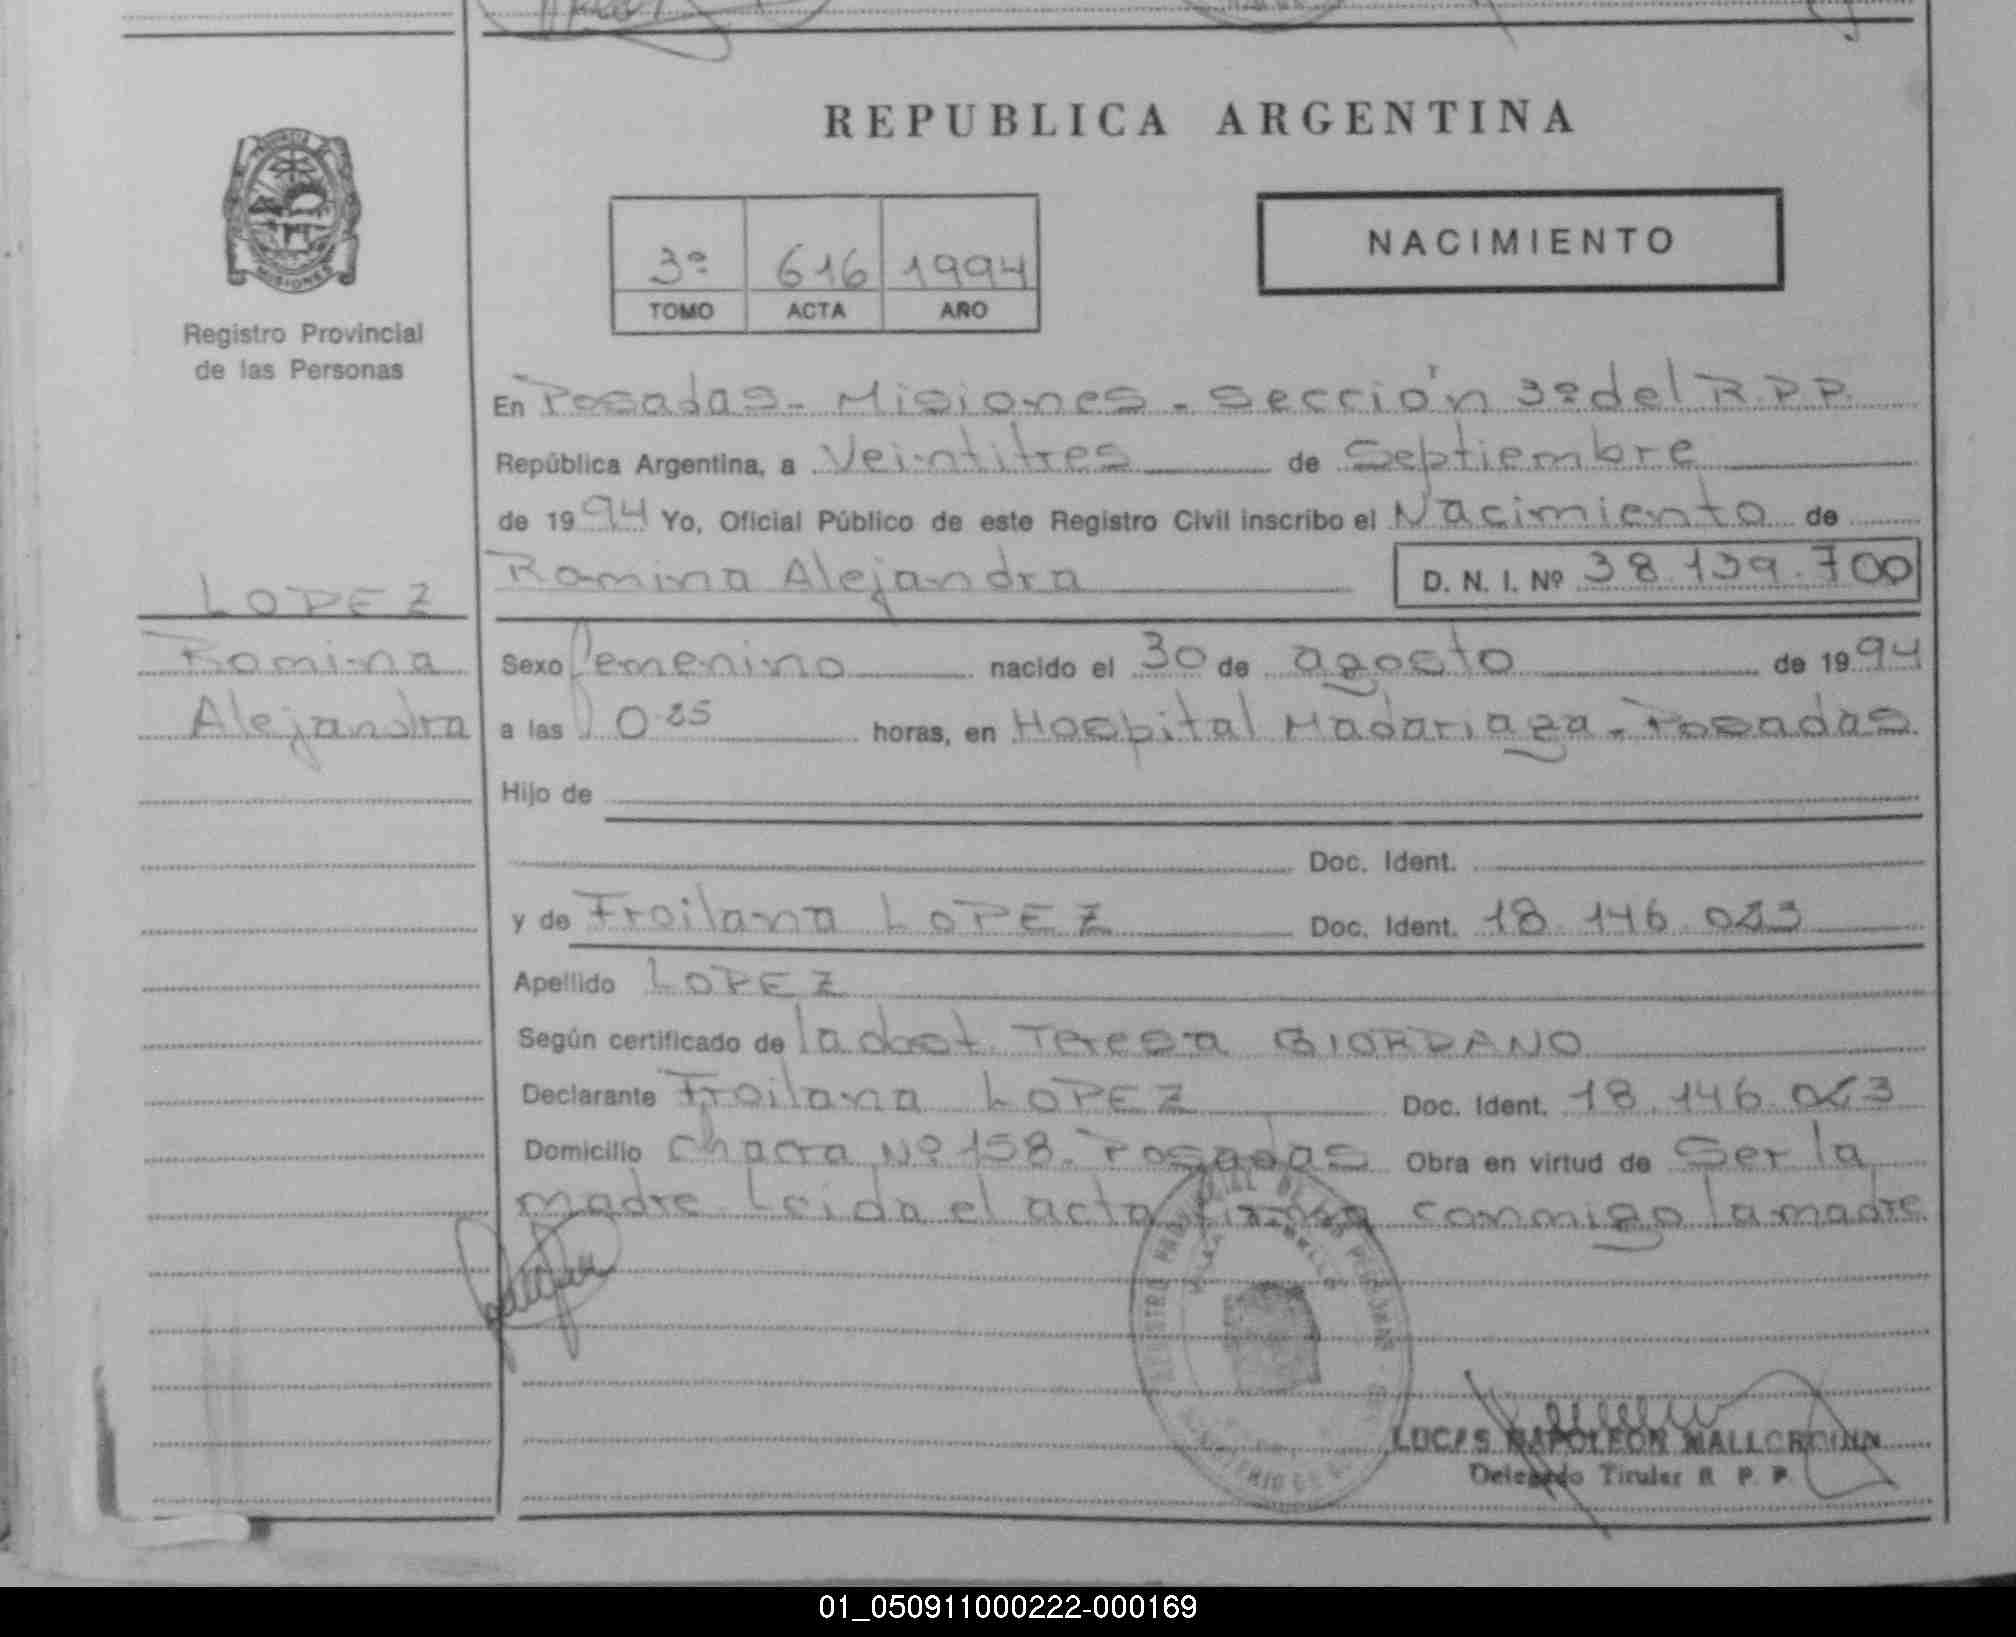 REPUBLICA ARGENTINA
NACIMIENTO
3º 616 1994
TOMO ACTA AÑO
MISIONES
Registro Provincial
de las Personas
LOPEZ
Romina
Alejandra
En Posadas - Misiones - Sección 3º del R.P.P.
República Argentina, a Veintitres de Septiembre
de 1994 Yo, Oficial Público de este Registro Civil inscribo el Nacimiento de
Romina Alejandra D. N. I. Nº 38.139.700
Sexo femenino nacido el 30 de agosto de 1994
a las horas, en Hospital Madariaga - Posadas
Hijo de
Doc. Ident.
y de Froilana LOPEZ Doc. Ident. 18.146.
Apellido LOPEZ
Según certificado de la doct. Teresa GIORDANO
Declarante Froilana LOPEZ Doc. Ident. 18.146.
Domicilio Chacra Nº 158. Posadas Obra en virtud de Ser la
madre. Leida el acta firma conmigo la madre
LUCAS NAPOLEON
Delegado Titular R. P. P.
01_050911000222-000169